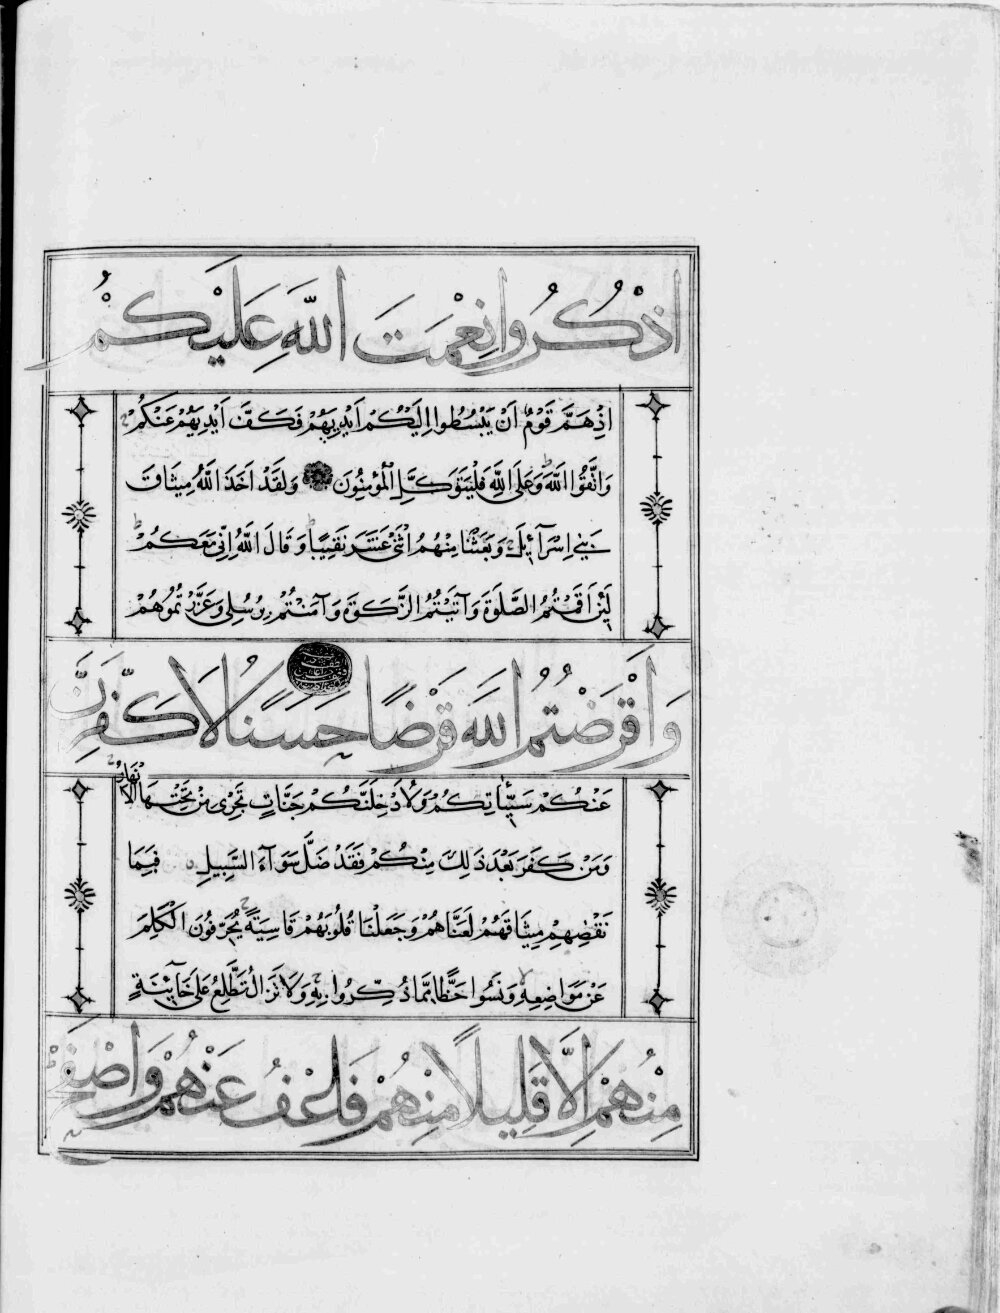 اذْكُرُوا نِعْمَتَ اللَّهِ عَلَيْكُمْ
اِذْ هَمَّ قَوْمٌ اَنْ يَبْسُطُوا اِلَيْكُمْ اَيْدِيَهُمْ فَكَفَّ اَيْدِيَهُمْ عَنْكُمْ
وَاتَّقُوا اللَّهَ وَعَلَى اللَّهِ فَلْيَتَوَكَّلِ الْمُؤْمِنُونَ وَلَقَدْ اَخَذَ اللَّهُ مِيثَاقَ
بَنِي اِسْرَآئِيلَ وَبَعَثْنَا مِنْهُمُ اثْنَيْ عَشَرَ نَقِيبًا وَقَالَ اللَّهُ اِنِّي مَعَكُمْ
لَئِنْ اَقَمْتُمُ الصَّلَوةَ وَآتَيْتُمُ الزَّكَوةَ وَآمَنْتُمْ بِرُسُلِي وَعَزَّرْتُمُوهُمْ
وَاَقْرَضْتُمُ اللَّهَ قَرْضًا حَسَنًا لَاُكَفِّرَنَّ
عَنْكُمْ سَيِّئَاتِكُمْ وَلَاُدْخِلَنَّكُمْ جَنَّاتٍ تَجْرِي مِنْ تَحْتِهَا الْاَنْهَارُ
فَمَنْ كَفَرَ بَعْدَ ذَلِكَ مِنْكُمْ فَقَدْ ضَلَّ سَوَآءَ السَّبِيلِ فَبِمَا
نَقْضِهِمْ مِيثَاقَهُمْ لَعَنَّاهُمْ وَجَعَلْنَا قُلُوبَهُمْ قَاسِيَةً يُحَرِّفُونَ الْكَلِمَ
عَنْ مَوَاضِعِهِ وَنَسُوا حَظًّا مِمَّا ذُكِّرُوا بِهِ وَلَا تَزَالُ تَطَّلِعُ عَلَى خَآئِنَةٍ
مِنْهُمْ اِلَّا قَلِيلًا مِنْهُمْ فَاعْفُ عَنْهُمْ وَاصْفَحْ